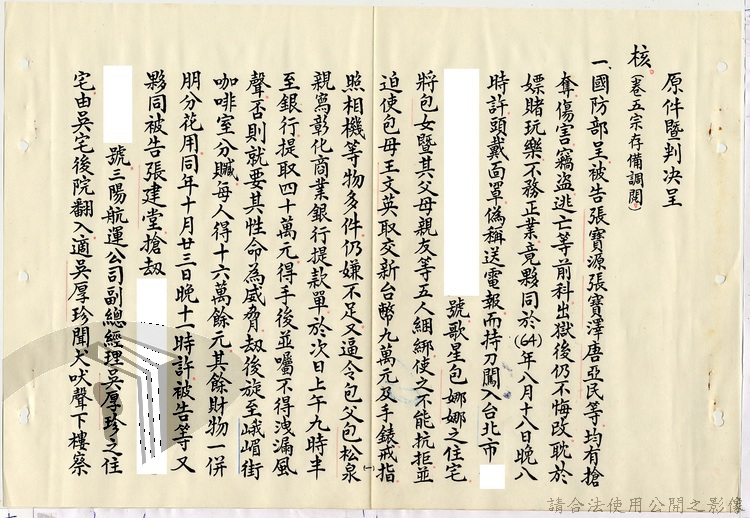 原件暨判決呈
核。(卷五宗存備調閱)
一、國防部呈被告張寶源張寶澤唐亞民等均有搶
奪傷害竊盜逃亡等前科出獄後仍不悔改耽於
嫖賭玩樂不務正業竟夥同於(64)年八月十八日晚八
時許頭戴面罩偽稱送電報而持刀闖入台北市
號歌星包娜娜之住宅
將包女暨其父母親友等五人綑綁使之不能抗拒並
迫使包母王文英取交新台幣九萬元及手錶戒指
(一)
照相機等物多件仍嫌不足又逼令包父包松泉
親寫彰化商業銀行提款單於次日上午九時半
至銀行提取四十萬元得手後並囑不得洩漏風
聲否則就要其性命為威脅劫後旋至峨嵋街
咖啡室分贓每人得十六萬餘元其餘財物一併
朋分花用同年十月廿三日晚十一時許被告等又
夥同被告張建堂搶劫
號三陽航運公司副總經理吳厚珍之住
宅由吳宅後院翻入適吳厚珍聞犬吠聲下樓察
請合法使用公開之影像